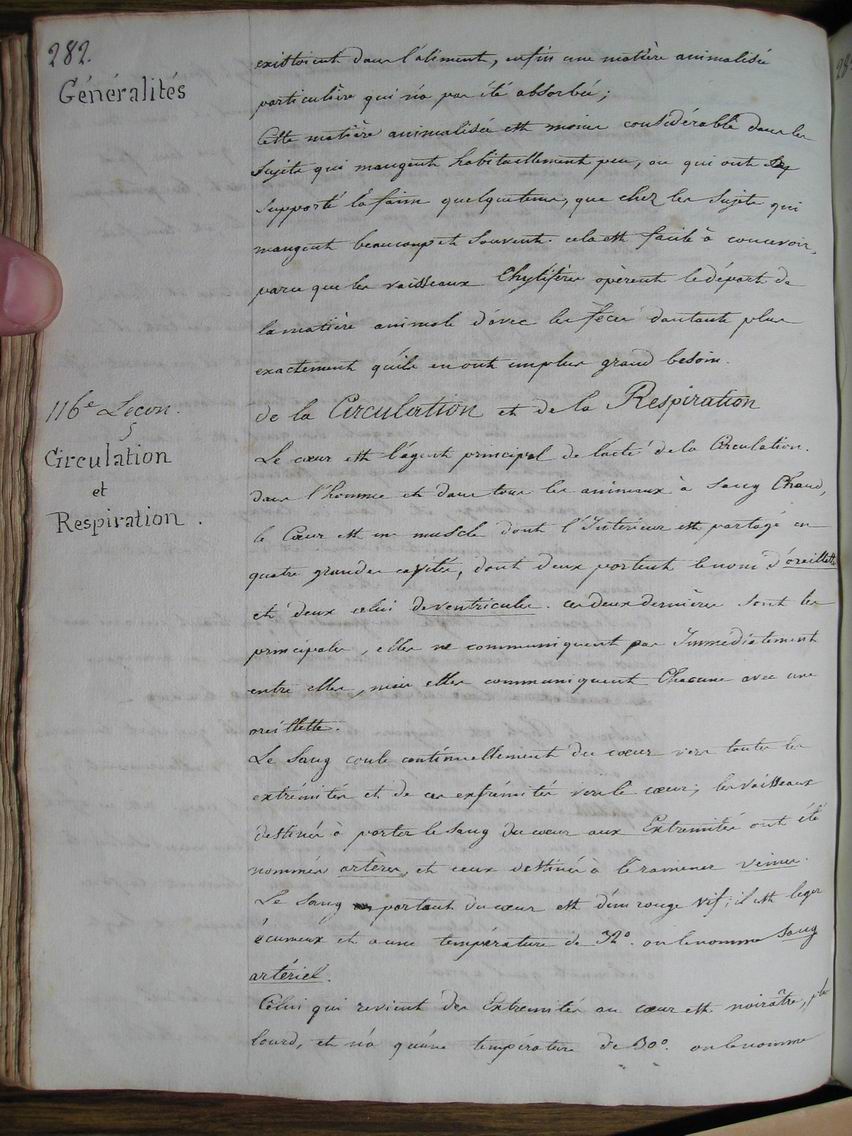 282.
Généralités
existoient dans l'aliment, enfin une matière animalisée
particulière qui n'a pas été absorbée;
Cette matière animalisée est moins considérable dans les
sujets qui mangent habituellement peu, ou qui ont
supporté la faim quelque tems, que chez les sujets qui
mangent beaucoup et souvent. cela est facile à concevoir,
parce que les vaisseaux Chylifères opèrent le départ de
la matière animale d'avec les fèces d'autant plus
exactement qu'ils en ont un plus grand besoin.
116e Leçon.
§
Circulation
et
Respiration.
de la Circulation et de la Respiration
Le cœur est l'agent principal de l'acte de la Circulation.
dans l'homme et dans tous les animaux à sang Chaud,
le Cœur est un muscle dont l'Intérieur est partagé en
quatre grandes cavités, dont deux portent le nom d'oreillette
et deux celui de ventricules. ces deux dernières sont les
principales, elles ne communiquent pas Immédiatement
entre elles, mais elles communiquent Chacune avec une
oreillette.
Le Sang coule continuellement du cœur vers toutes les
extrémités et de ces extrémités vers le cœur; les vaisseaux
destinés à porter le sang du cœur aux Extrémités ont été
nommés artères, et ceux destinés à le ramener veines.
Le Sang partant du cœur est d'un rouge vif; il est leger
écumeux et a une température de 32°. on le nomme Sang
artériel.
Celui qui revient des Extremités au cœur est noirâtre, plus
lourd, et n'a qu'une température de 30°. on le nomme